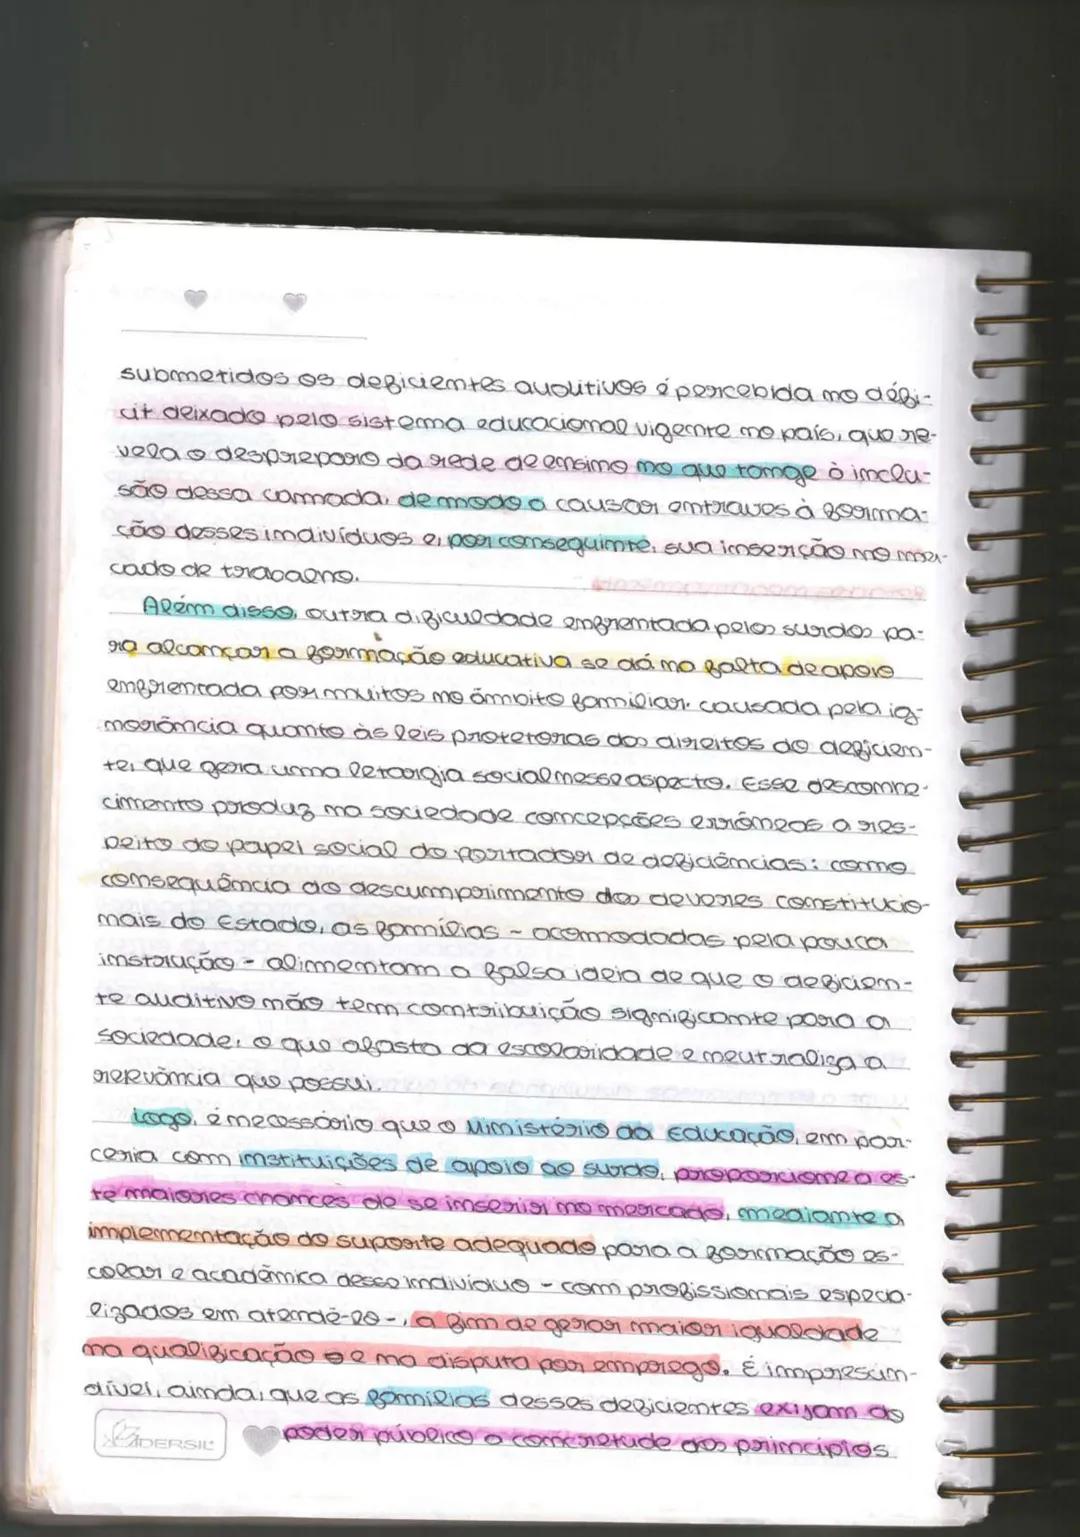 submetidos os deficientes auditivos é percebida no défi-
cit deixado pelo sistema educacional vigente no país, que re-
vela o despreparo da rede de ensino no que tange à inclu-
são dessa camada, de modo a causar entraves à forma-
ção desses indivíduos e, por conseguinte, sua inserção no mer-
cado de trabalho.
Além disso, outra dificuldade enfrentada pelos surdos pa-
ra alcançar a formação educativa se dá na falta de apoio
enfrentada por muitos no âmbito familiar, causada pela ig-
norância quanto às leis protetoras dos direitos do deficien-
te, que gera uma letargia social nesse aspecto. Esse desconhe-
cimento produz na sociedade concepções errôneas a res-
peito do papel social do portador de deficiências: como
consequência do descumprimento dos deveres constitucio-
nais do Estado, as famílias - acomodadas pela pouca
instrução - alimentam a falsa ideia de que o deficien-
te auditivo não tem contribuição significante para a
sociedade, o que afasta da escolaridade e neutraliza a
relevância que possui.
Logo, é necessário que o Ministério da Educação, em par-
ceria com instituições de apoio ao surdo, proporcione a es-
te maiores chances de se inserir no mercado, mediante a
implementação do suporte adequado para a formação es-
colar e acadêmica desse indivíduo - com profissionais especia-
lizados em atendê-lo -, a fim de gerar maior igualdade
na qualificação e na disputa por emprego. É imprescin-
dível, ainda, que as famílias desses deficientes exijam do
poder público a concretude dos princípios
ADERSIL